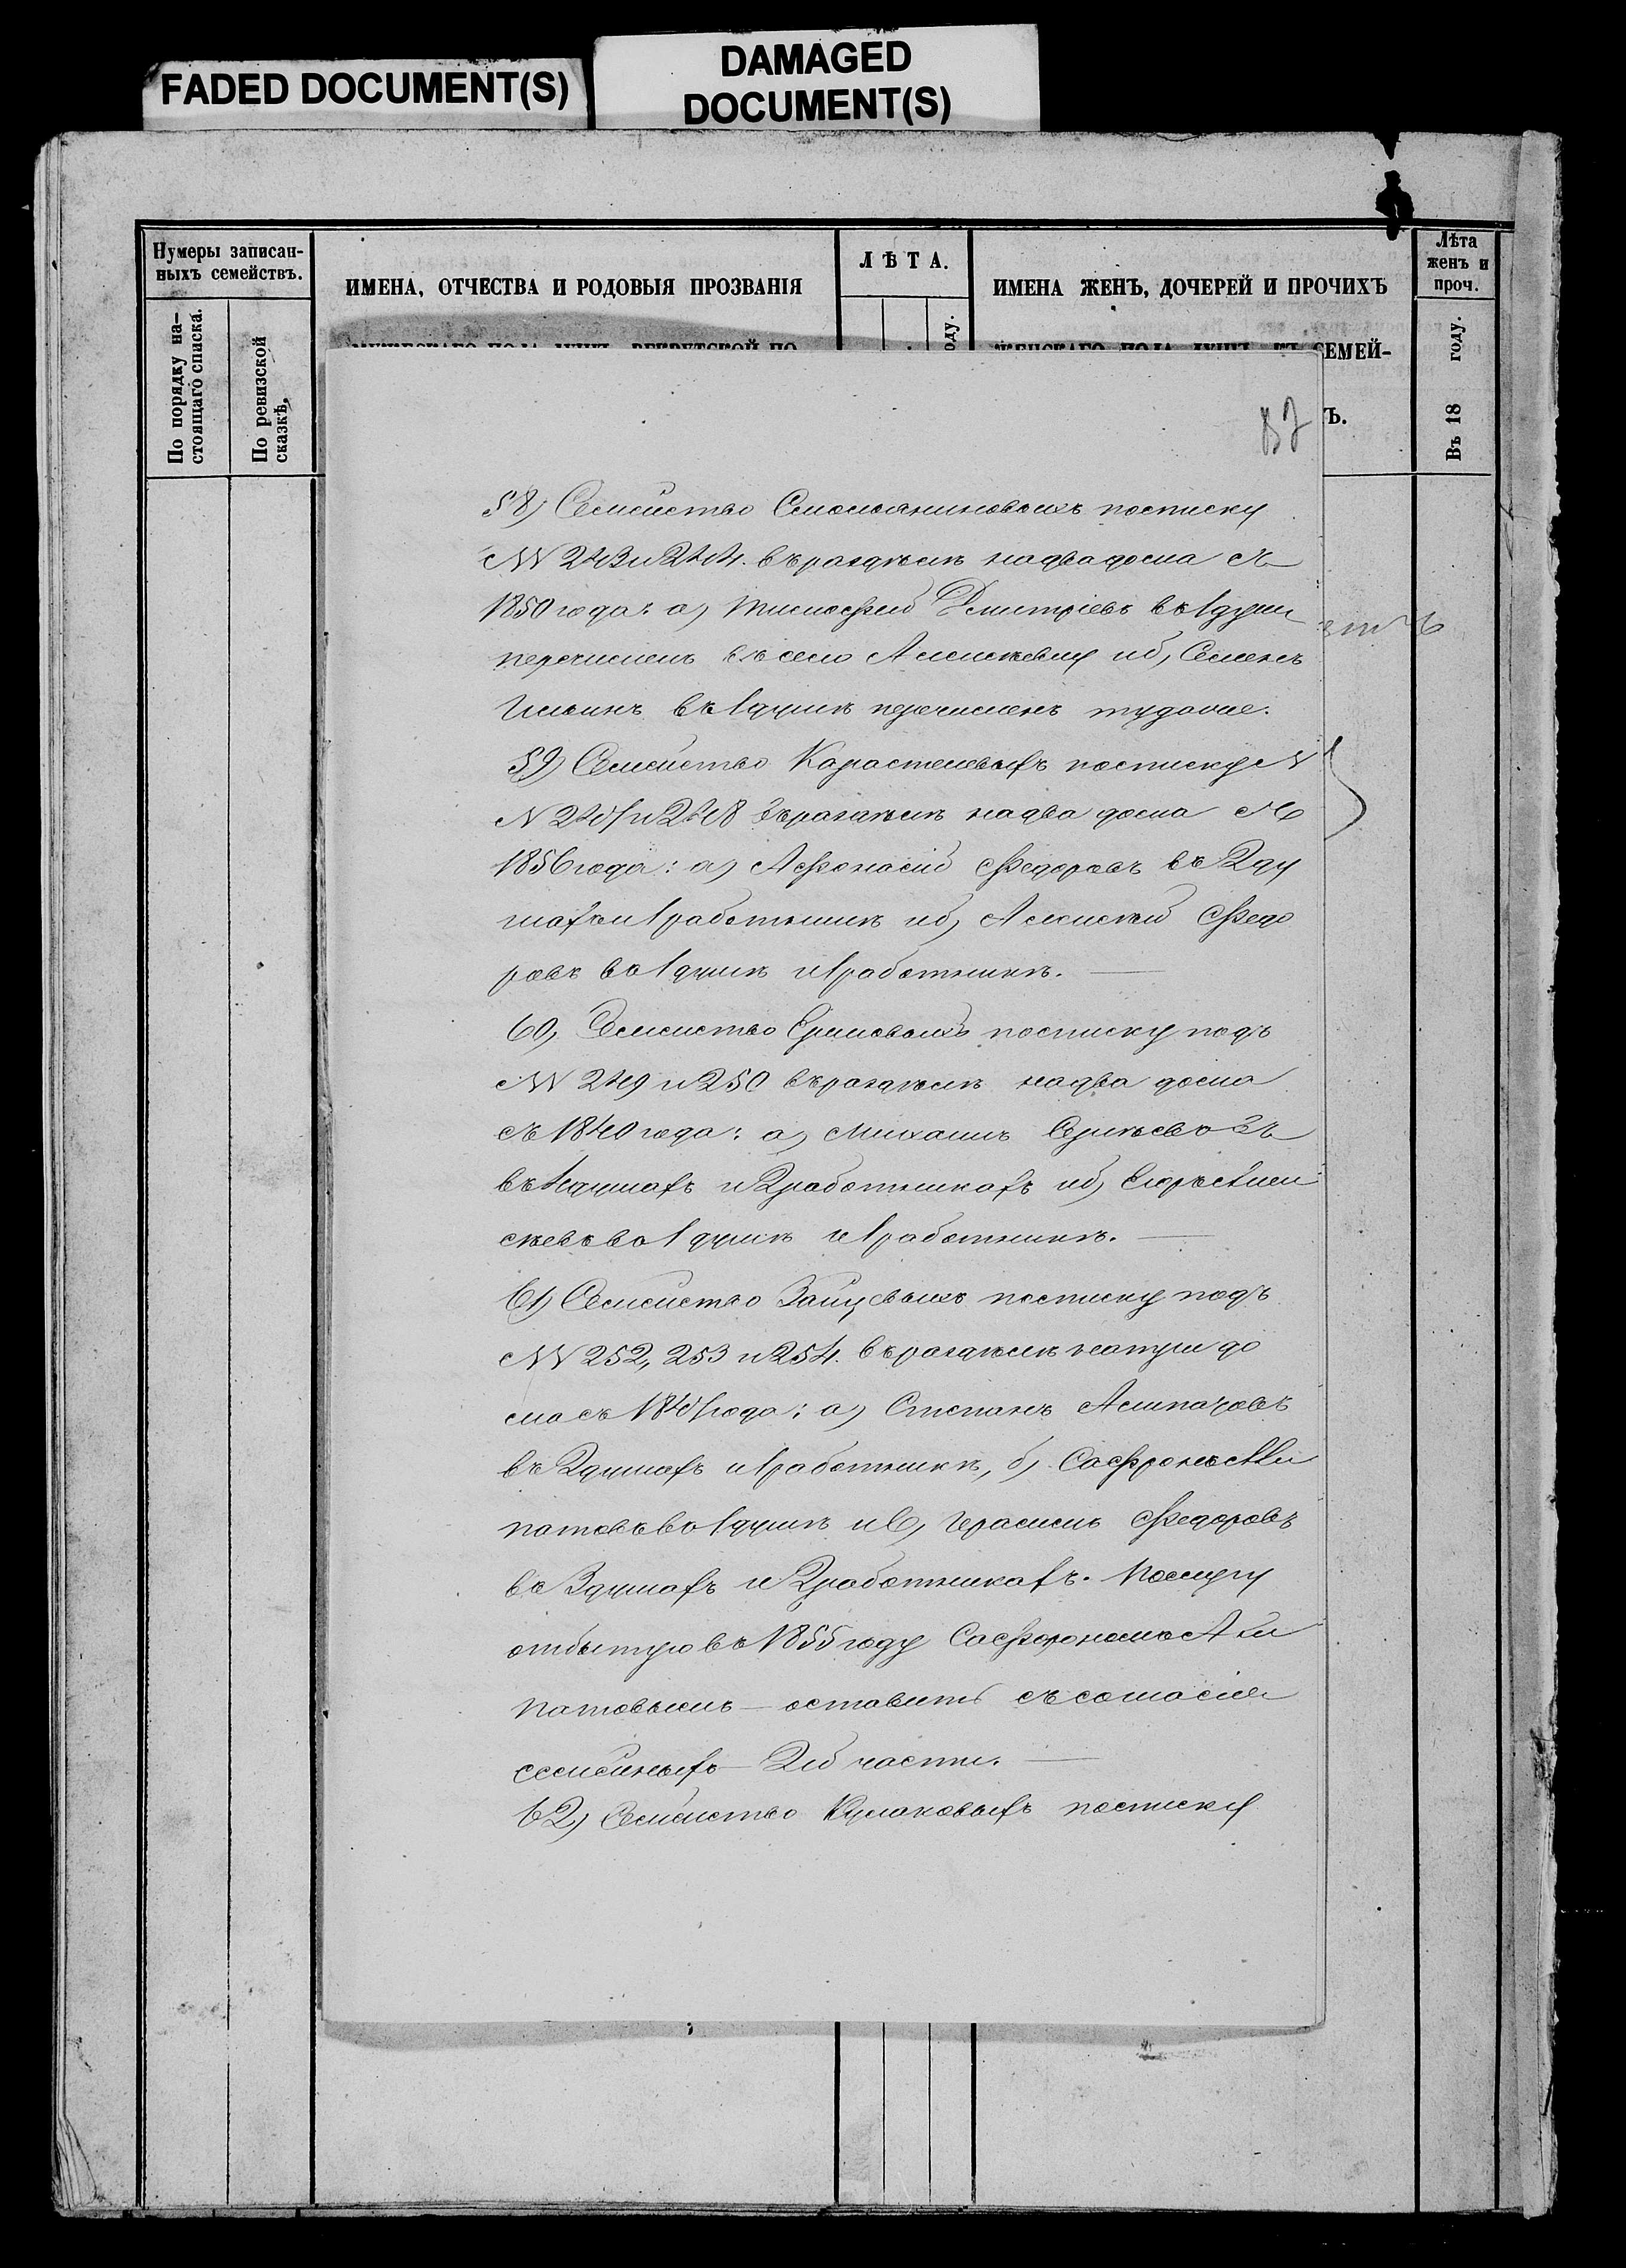 FADED DOCUMENT(S)
DAMAGED
DOCUMENT(S)
Нумеры записан-
ныхъ семействъ.
По порядку на-
стоящаго списка.
По ревизской
сказкѣ,
ИМЕНА, ОТЧЕСТВА И РОДОВЫЯ ПРОЗВАНІЯ
ЛѢТА.
оду.
ИМЕНА ЖЕНЪ, ДОЧЕРЕЙ И ПРОЧИХЪ
СЕМЕЙ-
Ъ.
Лѣта
женъ и
проч.
Въ 18 году.
87
58) Семейство Смольяниновыхъ по списку
NN 243 и 244. въ раздѣлѣ на два дома съ
1850 года: а) Тимофей Дмитріевъ въ 1 души
перечисленъ въ село и б, Семенъ
Ильинъ въ 1 душѣ перечисленъ туда же.
59) Семейство Карастелевыхъ по списку N
N и 248 въ раздѣлѣ на два дома съ
1856 года: а) Афонасій Федоровъ въ 2 ду
шахъ и 1 работникѣ и б, Алексѣй Федо
ровъ во 1 душѣ и 1 работникѣ.
60, Семейство по списку подъ
NN 249 и 250 въ раздѣлѣ на два дома
съ 1840 года: а, Михаилъ
въ душахъ и 2 работникахъ и б,
во 1 душѣ и 1 работникѣ.
61) Семейство Зайцевыхъ по списку подъ
NN 252, 253 и 254. въ раздѣлѣ на три до
ма съ года: а) Степанъ
въ 2 душахъ и 1 работникѣ, б, Софронъ
патовъ во 1 душѣ и в, Герасимъ Федоровъ
въ 3 душахъ и 2 работникахъ.
отбытую въ 1855 году Софрономъ
патовымъ — оставить съ согласія
семейныхъ — 2й части.
62) Семейство Кулаковыхъ по списку